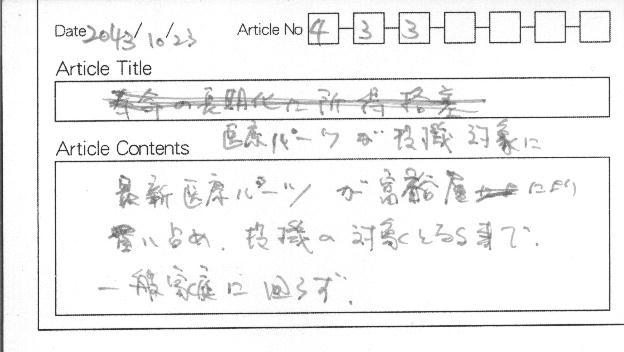 Date 2043/10/23 Article No 4 3 3
Article Title
寿命の長期化に所得格差
医療パーツが投機対象に
Article Contents
最新医療パーツが富裕層により
買い占め、投機の対象となる事で、
一般家庭に回らず。